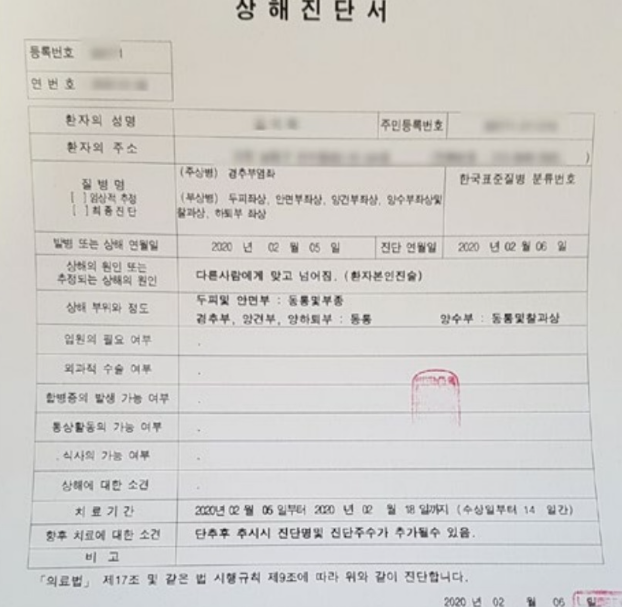 상해진단서
등록번호
연번호
환자의 성명 주민등록번호
환자의 주소 )
질병명
[ ]임상적 추정
[ ]최종진단
(주상병) 경추부염좌
(부상병) 두피좌상, 안면부좌상, 양견부좌상, 양수부좌상및
찰과상, 하퇴부 좌상
한국표준질병 분류번호
발병 또는 상해 연월일 2020 년 02 월 05 일 진단 연월일 2020 년 02 월 06 일
상해의 원인 또는
추정되는 상해의 원인
다른사람에게 맞고 넘어짐. (환자본인진술)
상해 부위와 정도
두피및 안면부 : 동통및부종
경추부, 양견부, 양하퇴부 : 동통 양수부 : 동통및찰과상
입원의 필요 여부 .
외과적 수술 여부 .
합병증의 발생 가능 여부 .
통상활동의 가능 여부 .
.식사의 가능 여부 .
상해에 대한 소견 .
치료기간 2020년 02 월 05 일부터 2020 년 02 월 18 일까지 (수상일부터 14 일간)
향후 치료에 대한 소견 단추후 추시시 진단명및 진단주수가 추가될수 있음.
비고
「의료법」 제17조 및 같은 법 시행규칙 제9조에 따라 위와 같이 진단합니다.
2020 년 02 월 06 일